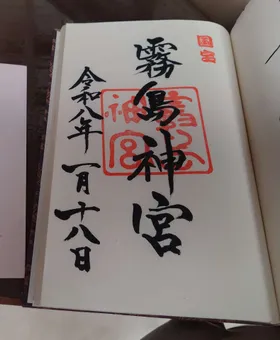 国宝
霧島神宮
令和八年一月十八日